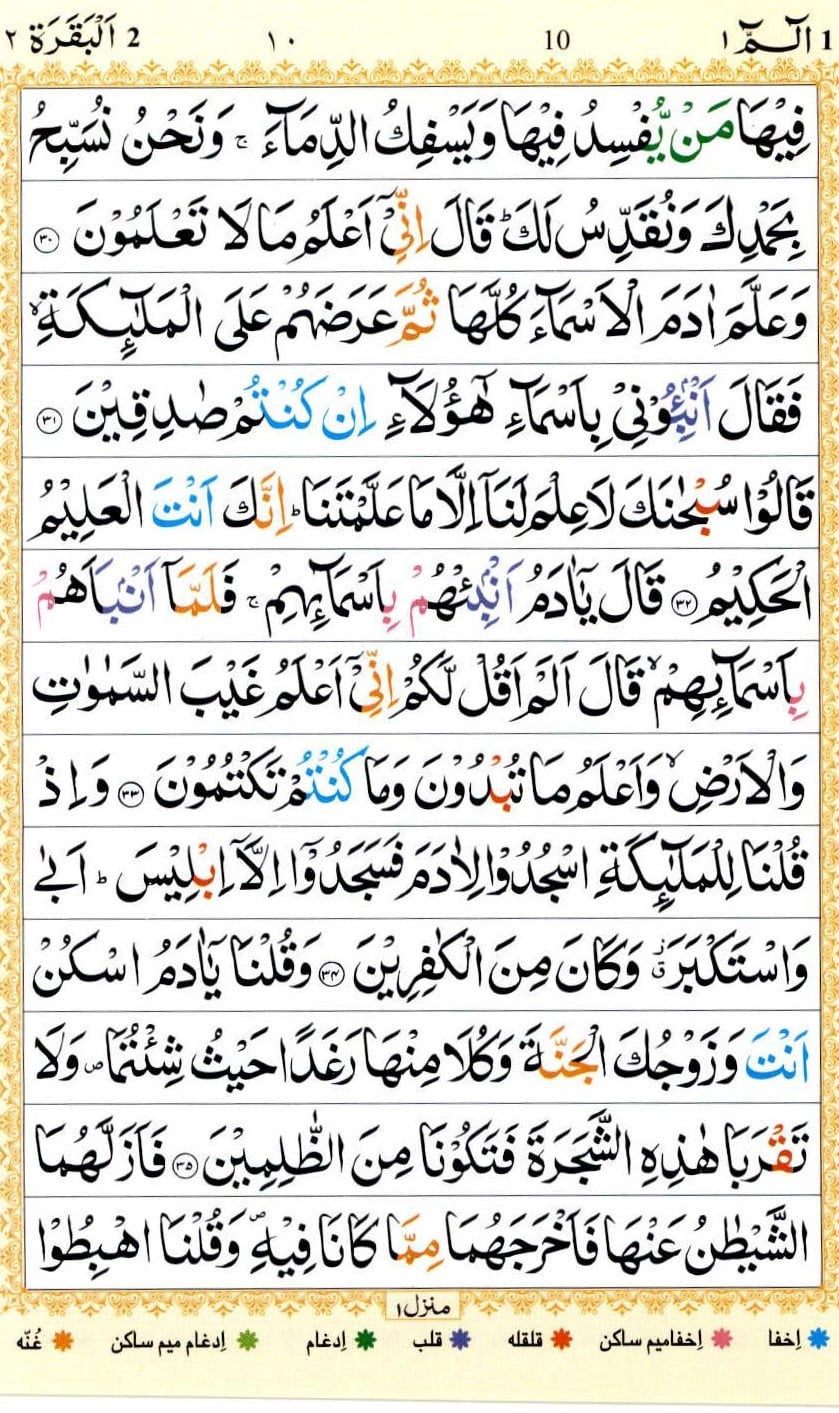 1 الٓـمّٓ ۱ 10 ۱۰ 2 اَلْبَقَرَة ۲
فِيْهَا مَنْ يُّفْسِدُ فِيْهَا وَيَسْفِكُ الدِّمَآءَ ۚ وَنَحْنُ نُسَبِّحُ
بِحَمْدِكَ وَنُقَدِّسُ لَكَ ؕ قَالَ اِنِّىْٓ اَعْلَمُ مَا لَا تَعْلَمُوْنَ ۝۳۰
وَعَلَّمَ اٰدَمَ الْاَسْمَآءَ كُلَّهَا ثُمَّ عَرَضَهُمْ عَلَى الْمَلٰٓئِكَةِ ۙ
فَقَالَ اَنْۢبِـُٔوْنِىْ بِاَسْمَآءِ هٰٓؤُلَآءِ اِنْ كُنْتُمْ صٰدِقِيْنَ ۝۳۱
قَالُوْا سُبْحٰنَكَ لَا عِلْمَ لَنَآ اِلَّا مَا عَلَّمْتَنَا ؕ اِنَّكَ اَنْتَ الْعَلِيْمُ
الْحَكِيْمُ ۝۳۲ قَالَ يٰٓاٰدَمُ اَنْۢبِئْهُمْ بِاَسْمَآئِهِمْ ۚ فَلَمَّآ اَنْۢبَاَهُمْ
بِاَسْمَآئِهِمْ ۙ قَالَ اَلَمْ اَقُلْ لَّكُمْ اِنِّىْٓ اَعْلَمُ غَيْبَ السَّمٰوٰتِ
وَالْاَرْضِ ۙ وَاَعْلَمُ مَا تُبْدُوْنَ وَمَا كُنْتُمْ تَكْتُمُوْنَ ۝۳۳ وَاِذْ
قُلْنَا لِلْمَلٰٓئِكَةِ اسْجُدُوْا لِاٰدَمَ فَسَجَدُوْٓا اِلَّآ اِبْلِيْسَ ؕ اَبٰى
وَاسْتَكْبَرَ ۗ وَكَانَ مِنَ الْكٰفِرِيْنَ ۝۳۴ وَقُلْنَا يٰٓاٰدَمُ اسْكُنْ
اَنْتَ وَزَوْجُكَ الْجَنَّةَ وَكُلَا مِنْهَا رَغَدًا حَيْثُ شِئْتُمَا ۪ وَلَا
تَقْرَبَا هٰذِهِ الشَّجَرَةَ فَتَكُوْنَا مِنَ الظّٰلِمِيْنَ ۝۳۵ فَاَزَلَّهُمَا
الشَّيْطٰنُ عَنْهَا فَاَخْرَجَهُمَا مِمَّا كَانَا فِيْهِ ۪ وَقُلْنَا اهْبِطُوْا
منزل ۱
اِخفا اِخفامیم ساکن قلقله قلب اِدغام اِدغام میم ساکن غُنّه